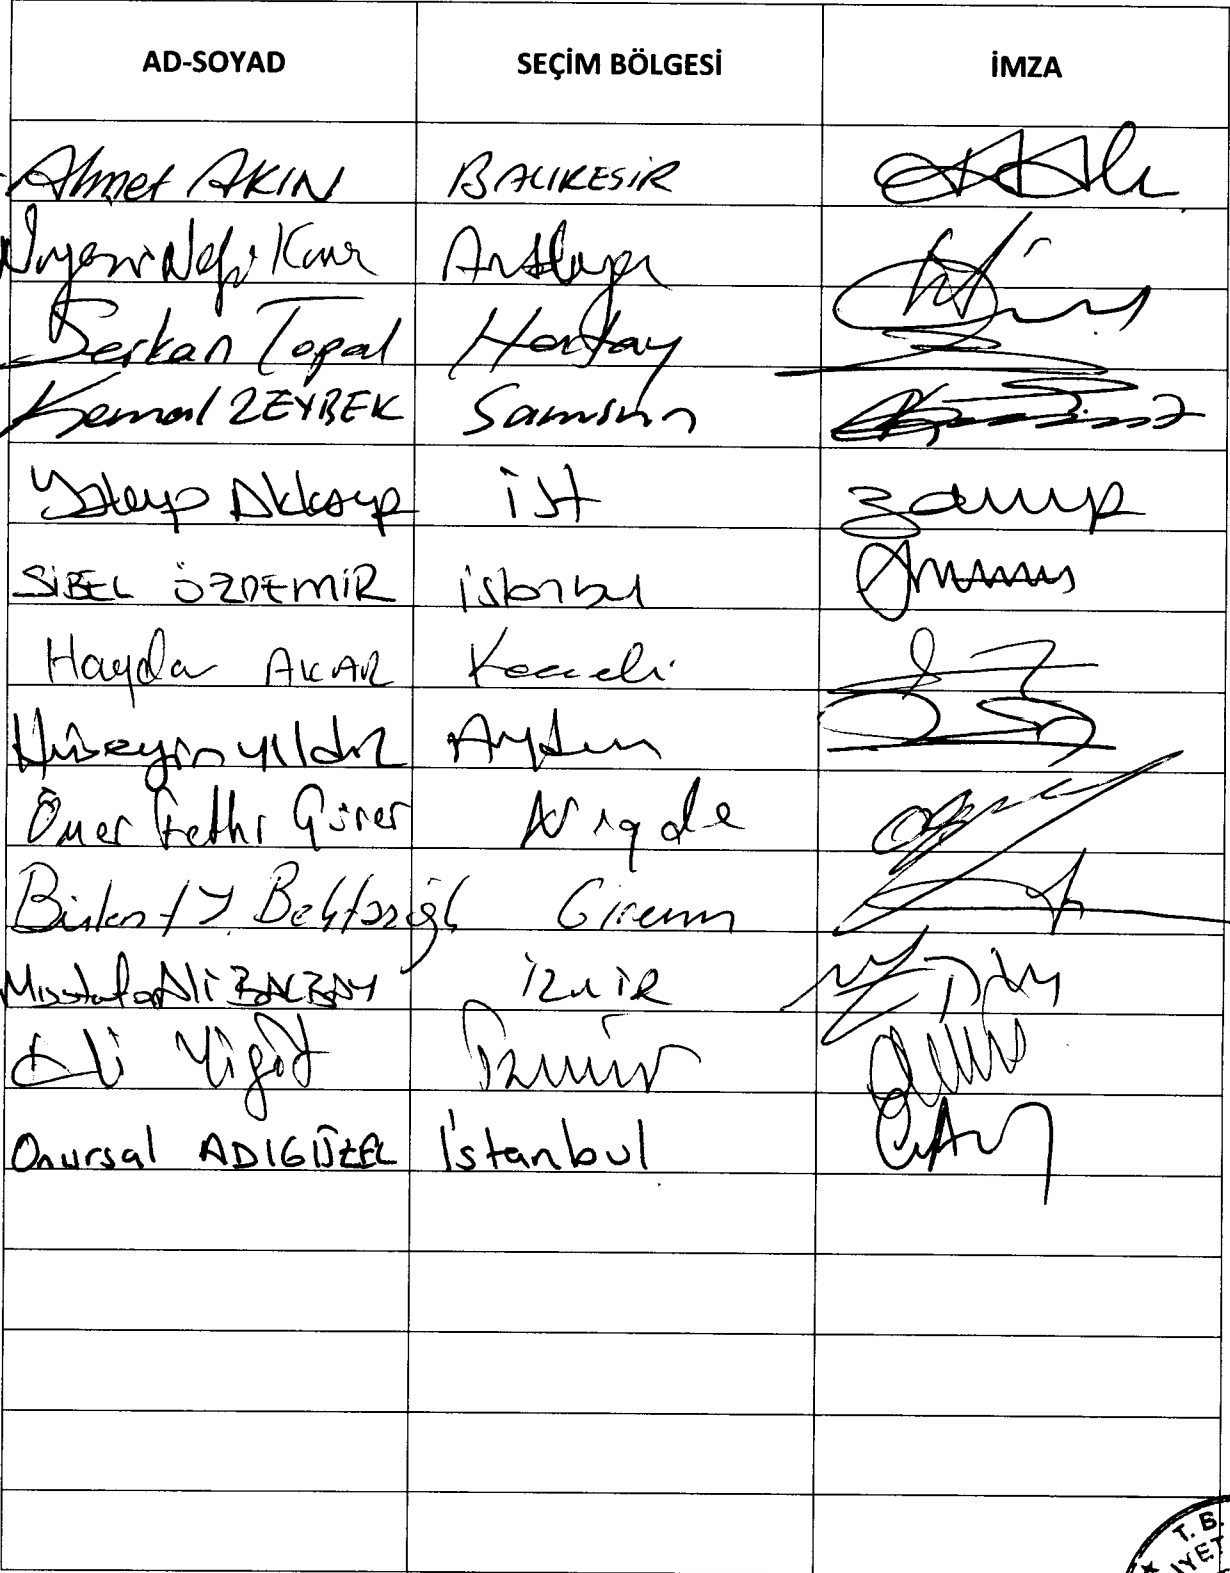 AD-SOYAD SEÇİM BÖLGESİ İMZA
Ahmet AKIN BALIKESİR
Niyazi Nefi Kara Antalya
Serkan Topal Hatay
Kemal ZEYBEK Samsun
Yakup Akkaya İst
SİBEL ÖZDEMİR istanbul
Haydar AKAR Kocaeli
Hüseyin YILDIZ Aydın
Ömer Fethi Gürer Niğde
Bülent Y. Bektaşoğlu Giresun
Mustafa Ali BALBAY İZMİR
Ali Yiğit İzmir
Onursal ADIGÜZEL İstanbul
T. B.